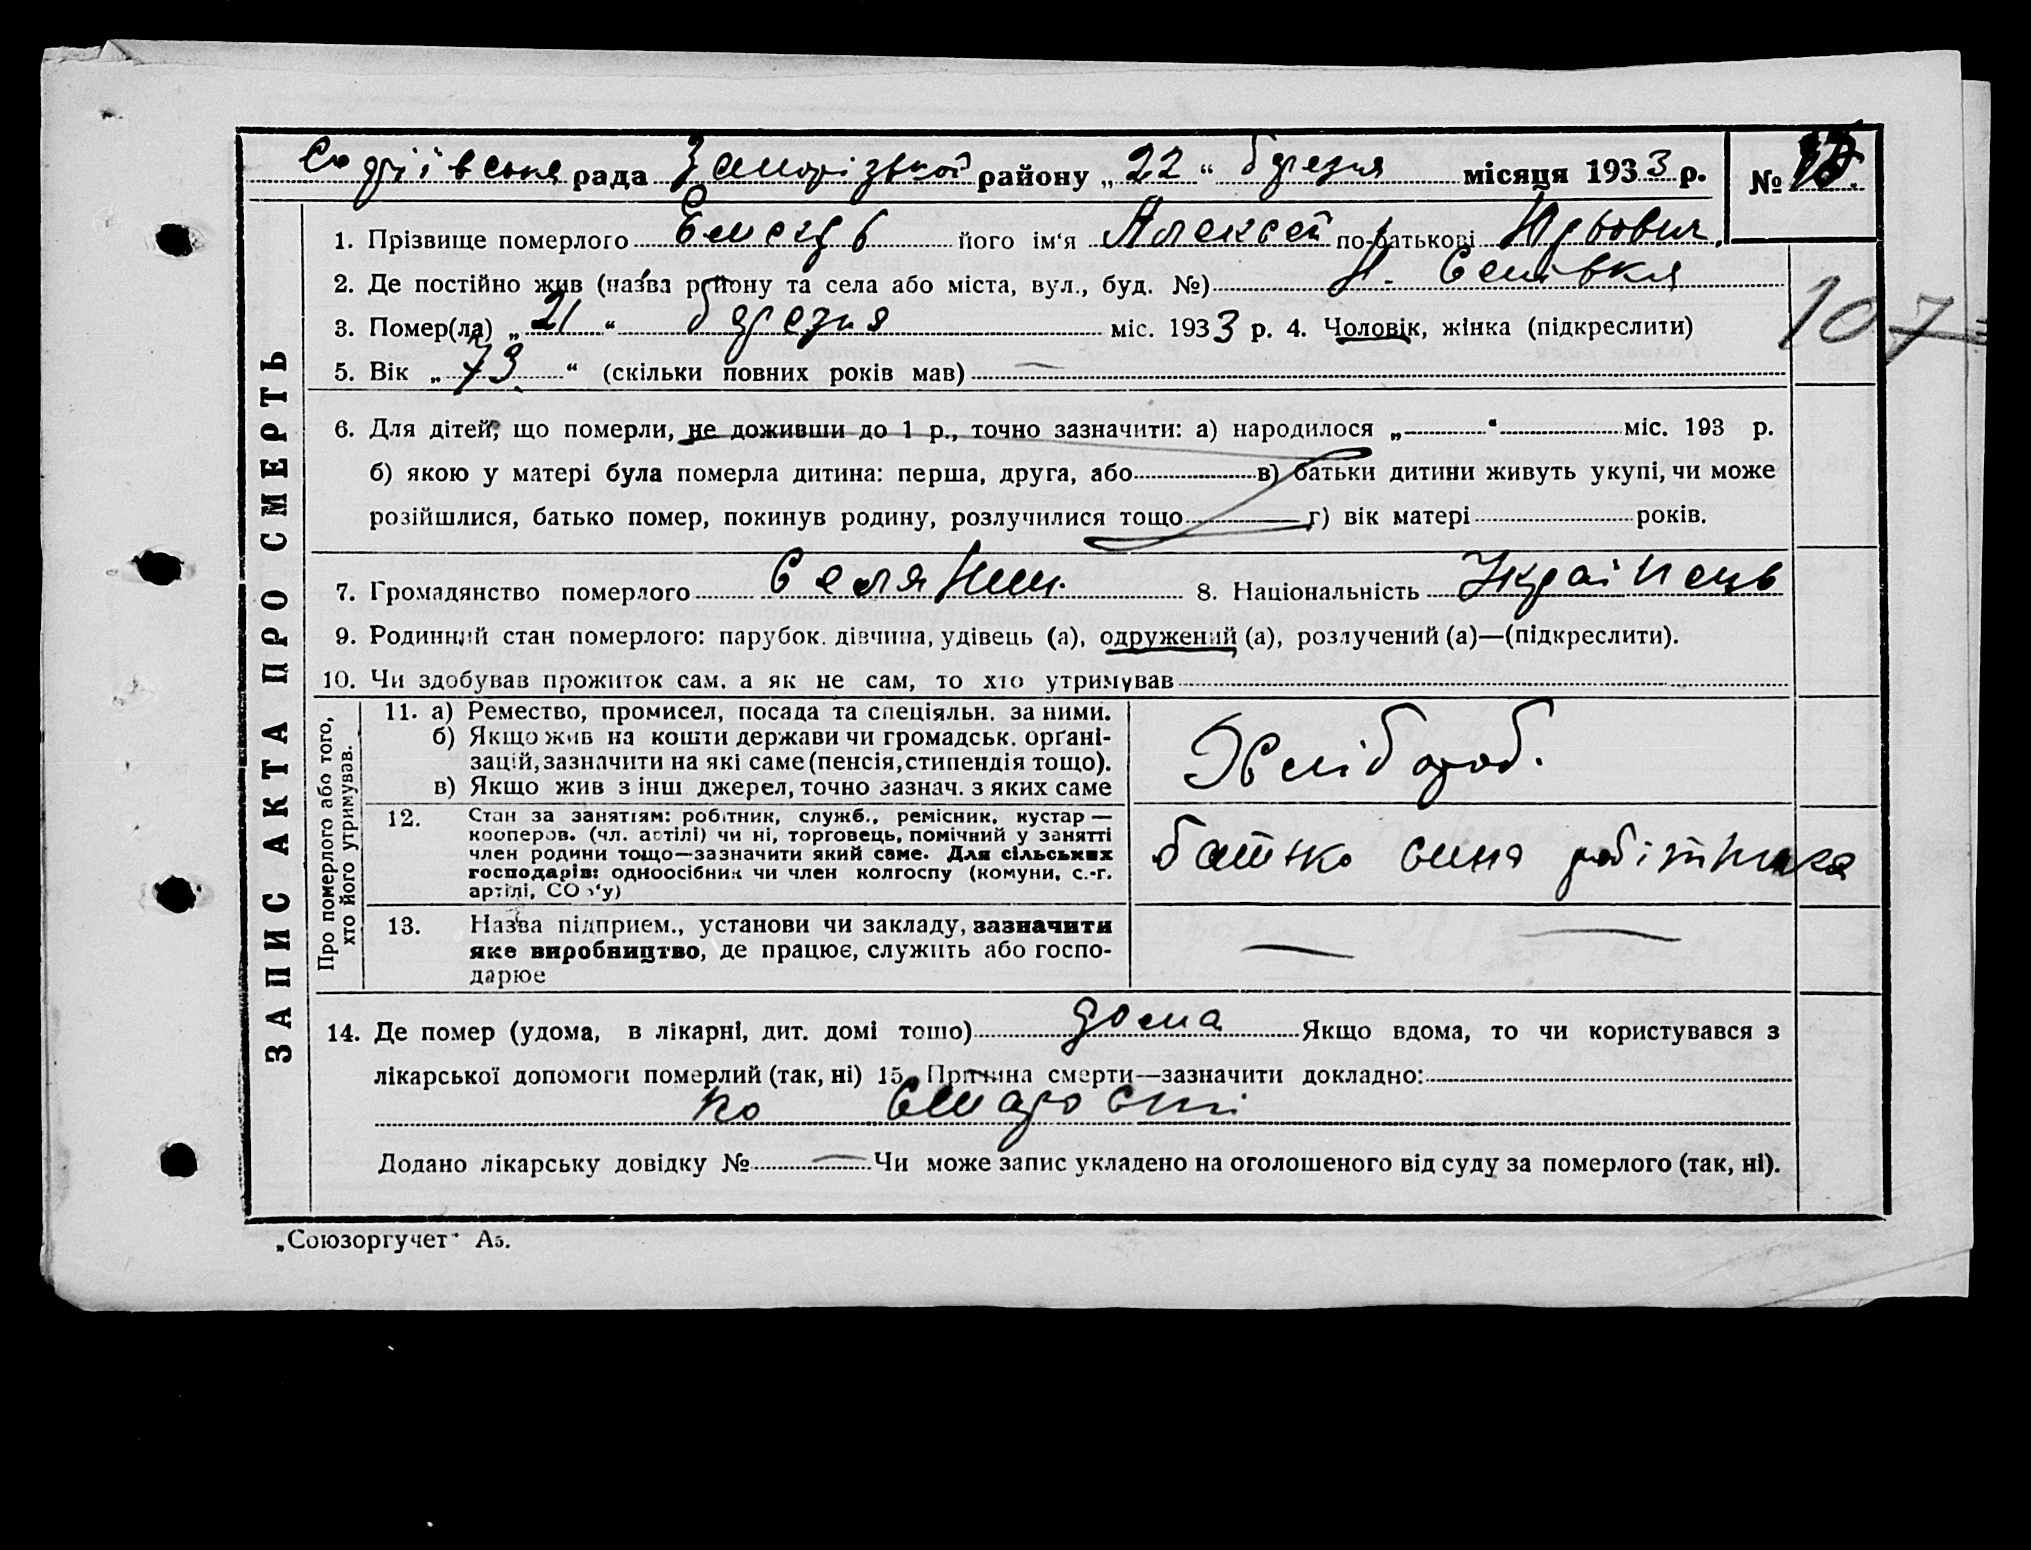 Софіївська рада Запорізької району „22“ березня місяця 1933 р. №
ЗАПИС АКТА ПРО СМЕРТЬ
1. Прізвище померлого Емець його ім‘я Алексей по-батькові
2. Де постійно жив (назва району та села або міста, вул., буд. №)
3. Помер(ла) „21“ березня міс. 1933 р. 4. Чоловік, жінка (підкреслити)
5. Вік „73“ (скільки повних років мав) —
107
6. Для дітей, що померли, не доживши до 1 р., точно зазначити: а) народилося „ “ міс. 193 р.
б) якою у матері була померла дитина: перша, друга, або в) батьки дитини живуть укупі, чи може
розійшлися, батько помер, покинув родину, розлучилися тощо г) вік матері років.
7. Громадянство померлого Селянин. 8. Національність Українець
9. Родинний стан померлого: парубок. дівчина, удівець (а), одружений (а), розлучений (а)—(підкреслити).
10. Чи здобував прожиток сам, а як не сам, то хто утримував
Про померлого або того, хто його утримував.
11. а) Ремество, промисел, посада та спеціяльн. за ними.
б) Якщо жив на кошти держави чи громадськ. орґані-
зацій, зазначити на які саме (пенсія, стипендія тощо).
в) Якщо жив з інш джерел, точно зазнач. з яких саме
Хлібороб.
12. Стан за заняттям: робітник, служб., ремісник, кустар —
кооперов. (чл. артілі) чи ні, торговець, помічний у занятті
член родини тощо—зазначити який саме. Для сільських
господарів: одноосібник чи член колгоспу (комуни, с.-г.
артілі, СОЗ‘у)
батько сина робітника
13. Назва підприєм., установи чи закладу, зазначити
яке виробництво, де працює, служить або госпо-
дарює
— —
14. Де помер (удома, в лікарні, дит. домі тощо) дома Якщо вдома, то чи користувався з
лікарської допомоги померлий (так, ні) 15. Причина смерти—зазначити докладно:
по старості
Додано лікарську довідку № — Чи може запис укладено на оголошеного від суду за померлого (так, ні).
„Союзоргучет“ А5.